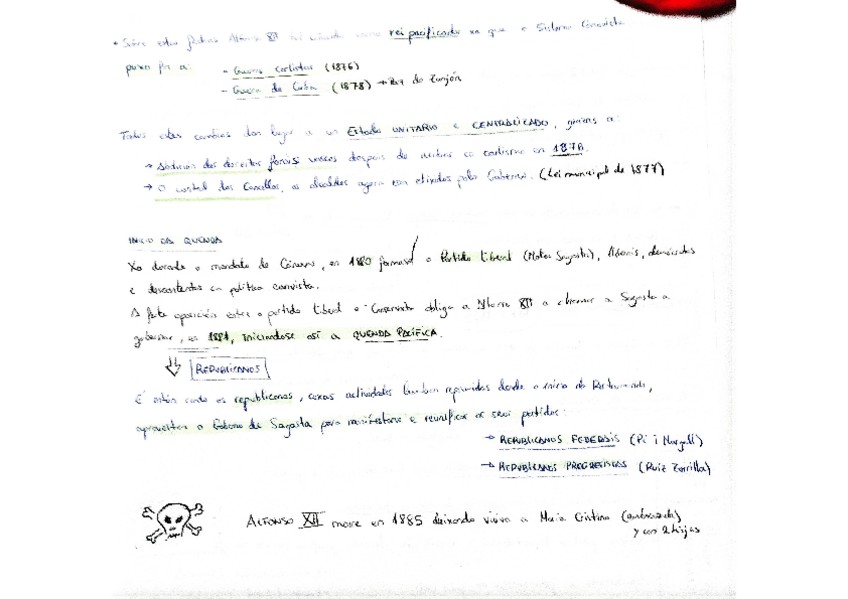 • Sobre estas Alfonso XII foi como rei pacificador xa que o Sistema Canovista
puxo fin a: - Guerra Carlistas (1876)
- Guerra de Cuba (1878) → Paz do Zanjón
Todos estes cambios dan lugar a un Estado UNITARIO e CENTRALIZADO, grazas a:
→ Abolición dos dereitos forais vascos despois do carlismo en 1876.
→ O control dos Concellos, os alcaldes agora son elixidos polo Goberno. (Lei municipal de 1877)
INICIO DA QUENDA
Xa durante o mandato de Cánovas, en 1880 formouse o Partido Liberal (Mateo Sagasta), demócratas
e descontentos ca política canovista.
A forte oposición entre o partido liberal e Conservador obliga a Alfonso XII a chamar a Sagasta a
gobernar, en 1881, iniciándose así a QUENDA PACÍFICA.
REPUBLICANOS
É entón cando os republicanos, cuxas actividades foron reprimidas desde o inicio da Restauración,
aproveitan o Goberno de Sagasta para manifestarse e reunificar os seus partidos:
→ REPUBLICANOS FEDERAIS (Pi i Margall)
→ REPUBLICANOS PROGRESISTAS (Ruiz Zorrilla)
ALFONSO XII morre en 1885 deixando viúva a María Cristina (embarazada)
y con 2 hijas